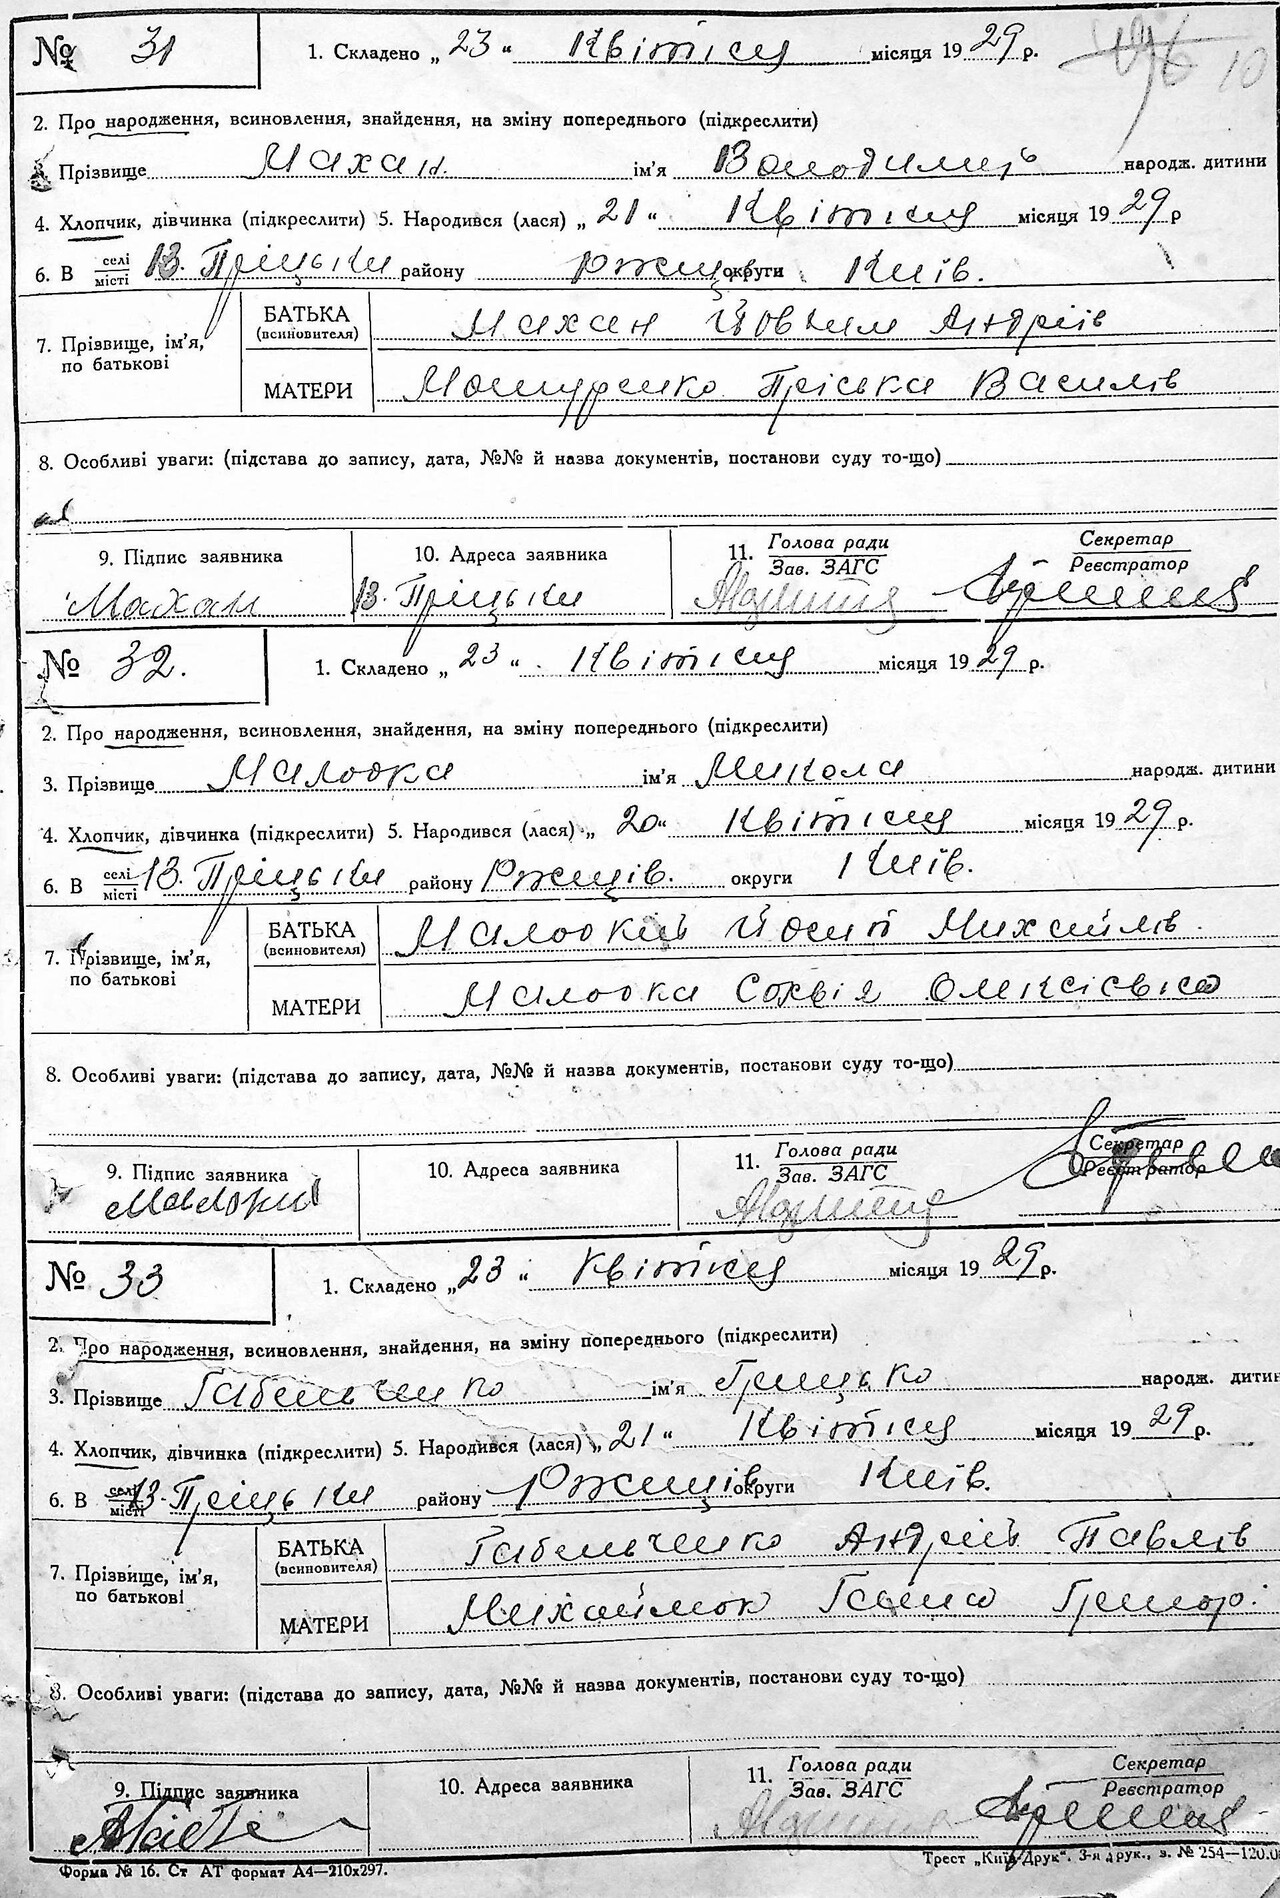 № 31 1. Складено „23“ Квітня місяця 1929 р. 10
2. Про народження, всиновлення, знайдення, на зміну попереднього (підкреслити)
3. Прізвище Махан ім'я Володимир народж. дитини
4. Хлопчик, дівчинка (підкреслити) 5. Народився (лася) „21“ Квітня місяця 1929 р
6. В селі/місті В. Пріцьки району Ржищ. округи Київ.
7. Прізвище, ім'я, по батькові
БАТЬКА (всиновителя) Махан Йовхим Андріїв
МАТЕРИ Пріська Василів
8. Особливі уваги: (підстава до запису, дата, №№ й назва документів, постанови суду то-що)
9. Підпис заявника 10. Адреса заявника 11. Голова ради / Зав. ЗАГС Секретар / Реєстратор
Махан В. Пріцьки
№ 32. 1. Складено „23“ Квітня місяця 1929 р.
2. Про народження, всиновлення, знайдення, на зміну попереднього (підкреслити)
3. Прізвище Малоока ім'я Микола народж. дитини
4. Хлопчик, дівчинка (підкреслити) 5. Народився (лася) „20“ Квітня місяця 1929 р.
6. В селі/місті В. Пріцьки району Ржищів. округи Київ.
7. Прізвище, ім'я, по батькові
БАТЬКА (всиновителя) Малоокий Йосип Михайлів.
МАТЕРИ Малоока Софія Олексієвна
8. Особливі уваги: (підстава до запису, дата, №№ й назва документів, постанови суду то-що)
9. Підпис заявника 10. Адреса заявника 11. Голова ради / Зав. ЗАГС Секретар / Реєстратор
Малокий
№ 33 1. Складено „23“ Квітня місяця 1929 р.
2. Про народження, всиновлення, знайдення, на зміну попереднього (підкреслити)
3. Прізвище Габельченко ім'я Грицько народж. дитин
4. Хлопчик, дівчинка (підкреслити) 5. Народився (лася) „21“ Квітня місяця 1929 р.
6. В селі/місті В. Пріцьки району Ржищів округи Київ.
7. Прізвище, ім'я, по батькові
БАТЬКА (всиновителя) Габельченко Андрій Павлів
МАТЕРИ Ганна Григор.
8. Особливі уваги: (підстава до запису, дата, №№ й назва документів, постанови суду то-що)
9. Підпис заявника 10. Адреса заявника 11. Голова ради / Зав. ЗАГС Секретар / Реєстратор
Форма № 16. Ст АТ формат А4—210x297. Трест „Київ-Друк“. 3-я друк., з. № 254—120.0